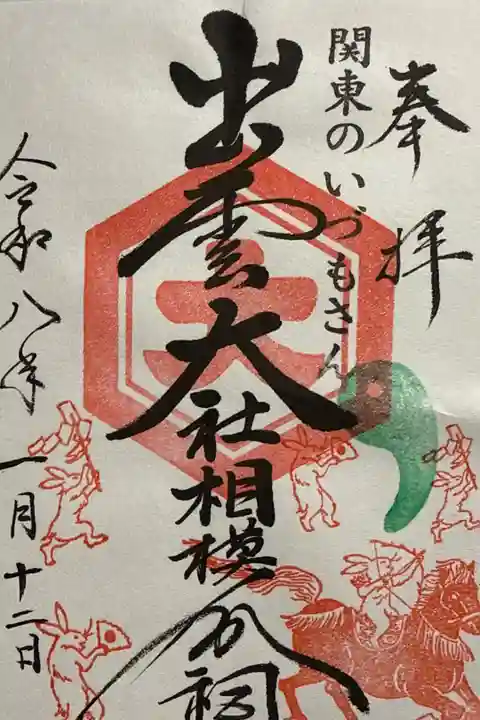 奉拝
関東のいづもさん
出雲大社相模分祠
大
令和八年一月十二日